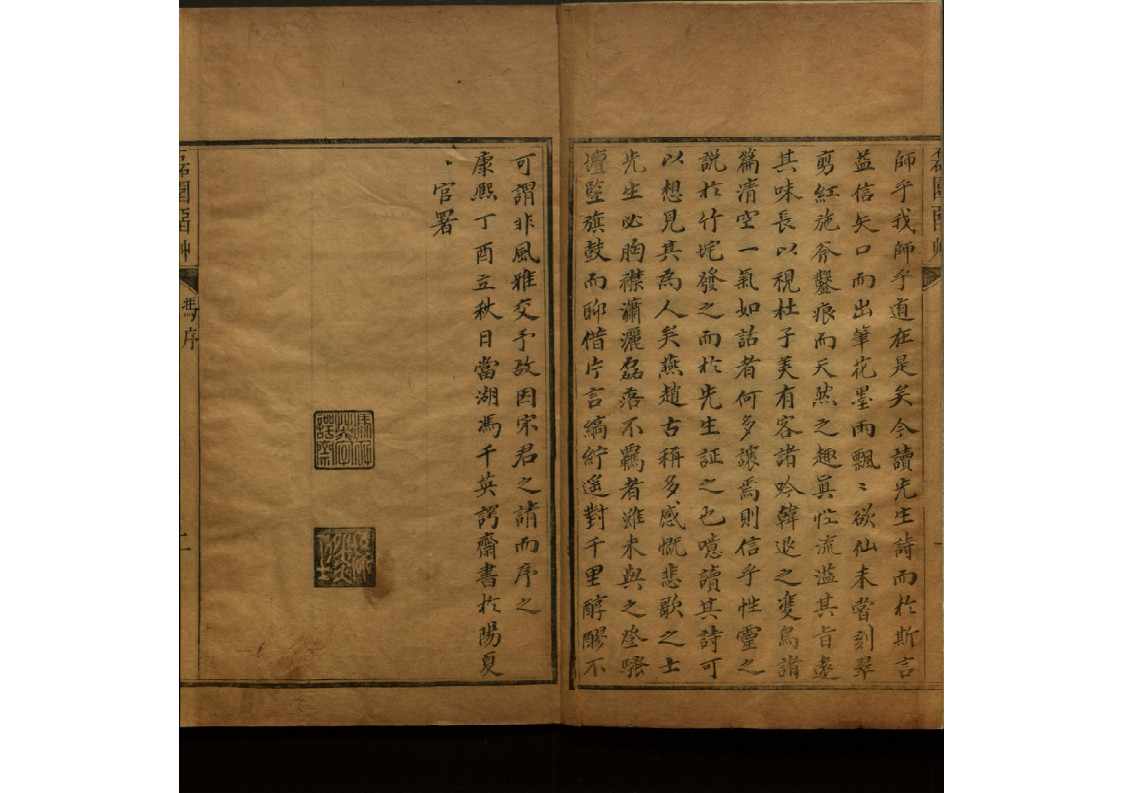 師乎我師乎道在是矣今讀先生詩而於斯言
益信矢口而出筆花墨雨飄〻欲仙未嘗刻翠
剪紅施斧鑿痕而天然之趣真性流溢其旨遠
其味長以視杜子美有客諸吟韓退之雙鳥諸
篇清空一氣如話者何多讓焉則信乎性靈之
說於竹垞發之而於先生証之也噫讀其詩可
以想見其為人矣燕趙古稱多感慨悲歌之士
先生必胸襟瀟灑磊落不羈者雖未與之登騷
壇豎旗鼓而即借片言縞紵遥對千里醇醪不
可謂非風雅交予故因宋君之請而序之
康熙丁酉立秋日當湖馮千英諤齋書於陽夏
官署
馮序
二